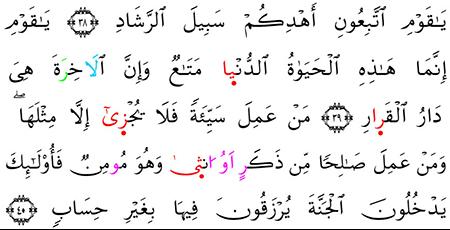 يَـٰقَوْمِ ٱتَّبِعُونِ أَهْدِكُمْ سَبِيلَ ٱلرَّشَادِ ٣٨ يَـٰقَوْمِ
إِنَّمَا هَـٰذِهِ ٱلْحَيَوٰةُ ٱلدُّنْيا مَتَـٰعٌ وَإِنَّ ٱلَاخِرَةَ هِىَ
دَارُ ٱلْقَرارِ ٣٩ مَنْ عَمِلَ سَيِّئَةً فَلَا يُجْزىٰٓ إِلَّا مِثْلَهَا ۖ
وَمَنْ عَمِلَ صَـٰلِحًا مِّن ذَكَرٍ اَوُ انثىٰ وَهُوَ مُومِنٌ فَأُو۟لَـٰٓئِكَ
يَدْخُلُونَ ٱلْجَنَّةَ يُرْزَقُونَ فِيهَا بِغَيْرِ حِسَابٍ ٤٠